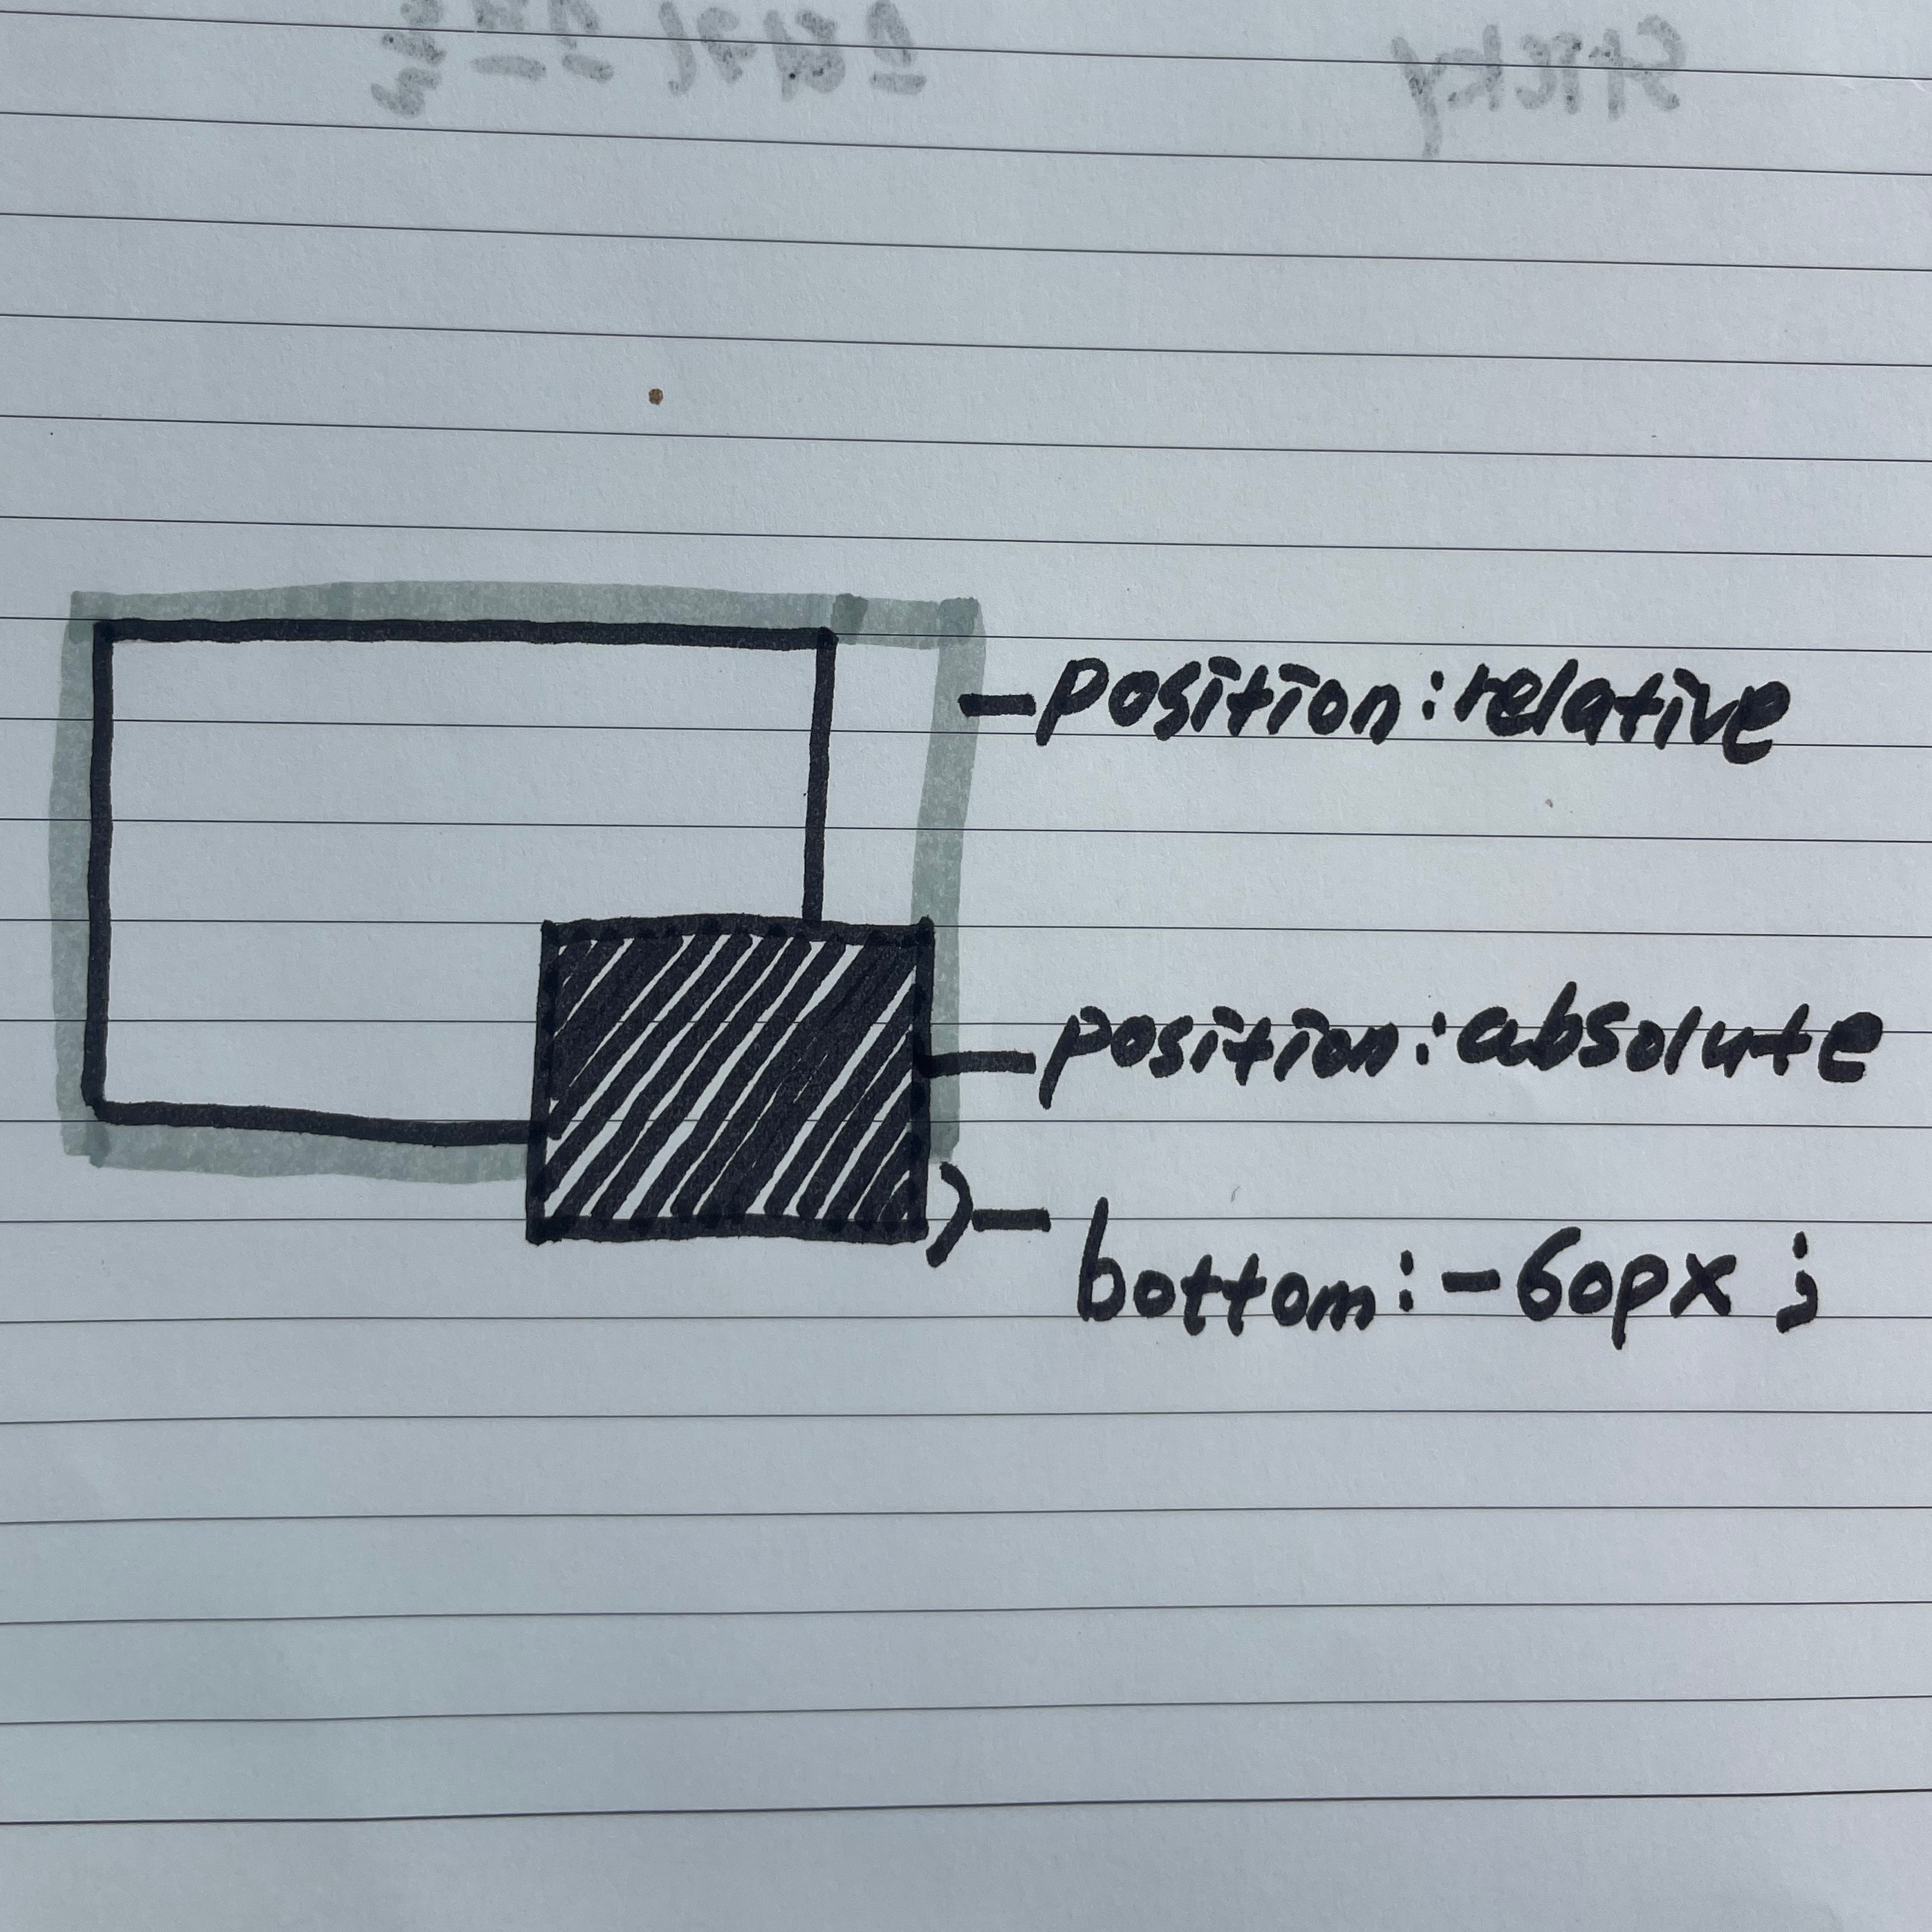 Sticky
position:relative
position:absolute
bottom:-60px;